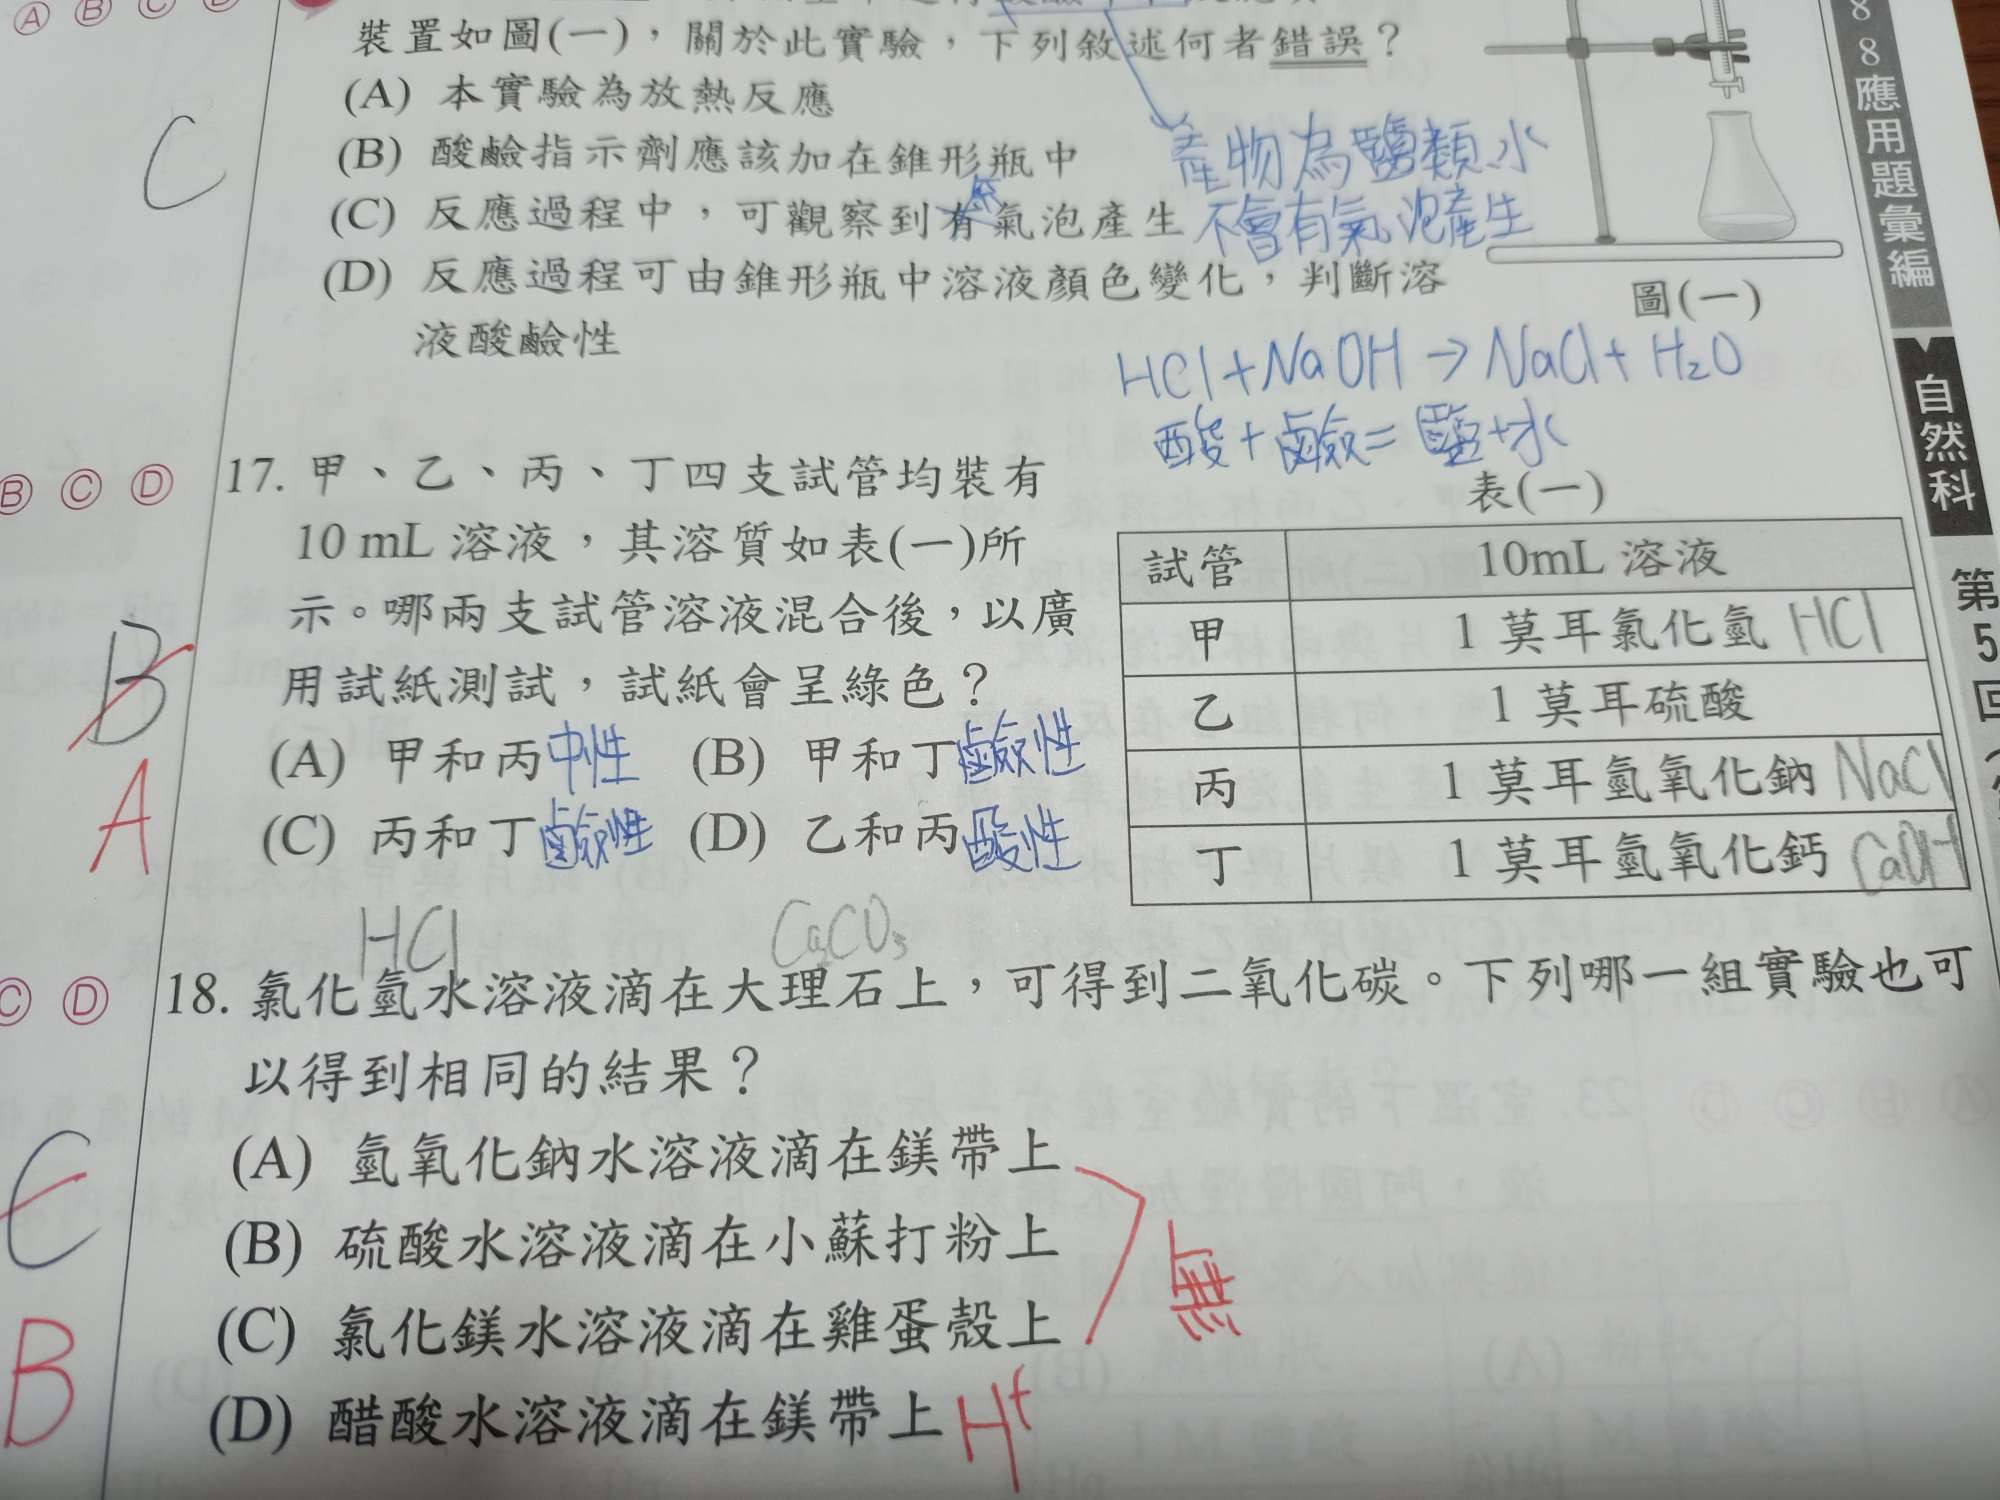 Ⓐ Ⓑ Ⓒ Ⓓ
裝置如圖(一)，關於此實驗，下列敘述何者錯誤？
(A) 本實驗為放熱反應
(B) 酸鹼指示劑應該加在錐形瓶中
(C) 反應過程中，可觀察到有氣泡產生
無
(D) 反應過程可由錐形瓶中溶液顏色變化，判斷溶
液酸鹼性
C
產物為鹽類水
不會有氣泡產生
圖(一)
HCl+NaOH→NaCl+H₂O
酸+鹼=鹽+水
Ⓑ Ⓒ Ⓓ
17. 甲、乙、丙、丁四支試管均裝有
10 mL 溶液，其溶質如表(一)所
示。哪兩支試管溶液混合後，以廣
用試紙測試，試紙會呈綠色？
(A) 甲和丙 中性 (B) 甲和丁 鹼性
(C) 丙和丁 鹼性 (D) 乙和丙 酸性
B
A
表(一)
試管 10mL 溶液
甲 1 莫耳氯化氫 HCl
乙 1 莫耳硫酸
丙 1 莫耳氫氧化鈉 NaCl
丁 1 莫耳氫氧化鈣 CaOH
HCl CaCO₃
Ⓒ Ⓓ
18. 氯化氫水溶液滴在大理石上，可得到二氧化碳。下列哪一組實驗也可
以得到相同的結果？
(A) 氫氧化鈉水溶液滴在鎂帶上
(B) 硫酸水溶液滴在小蘇打粉上
(C) 氯化鎂水溶液滴在雞蛋殼上
(D) 醋酸水溶液滴在鎂帶上 H⁺
無
C
B
88應用題彙編
自然科
第5回